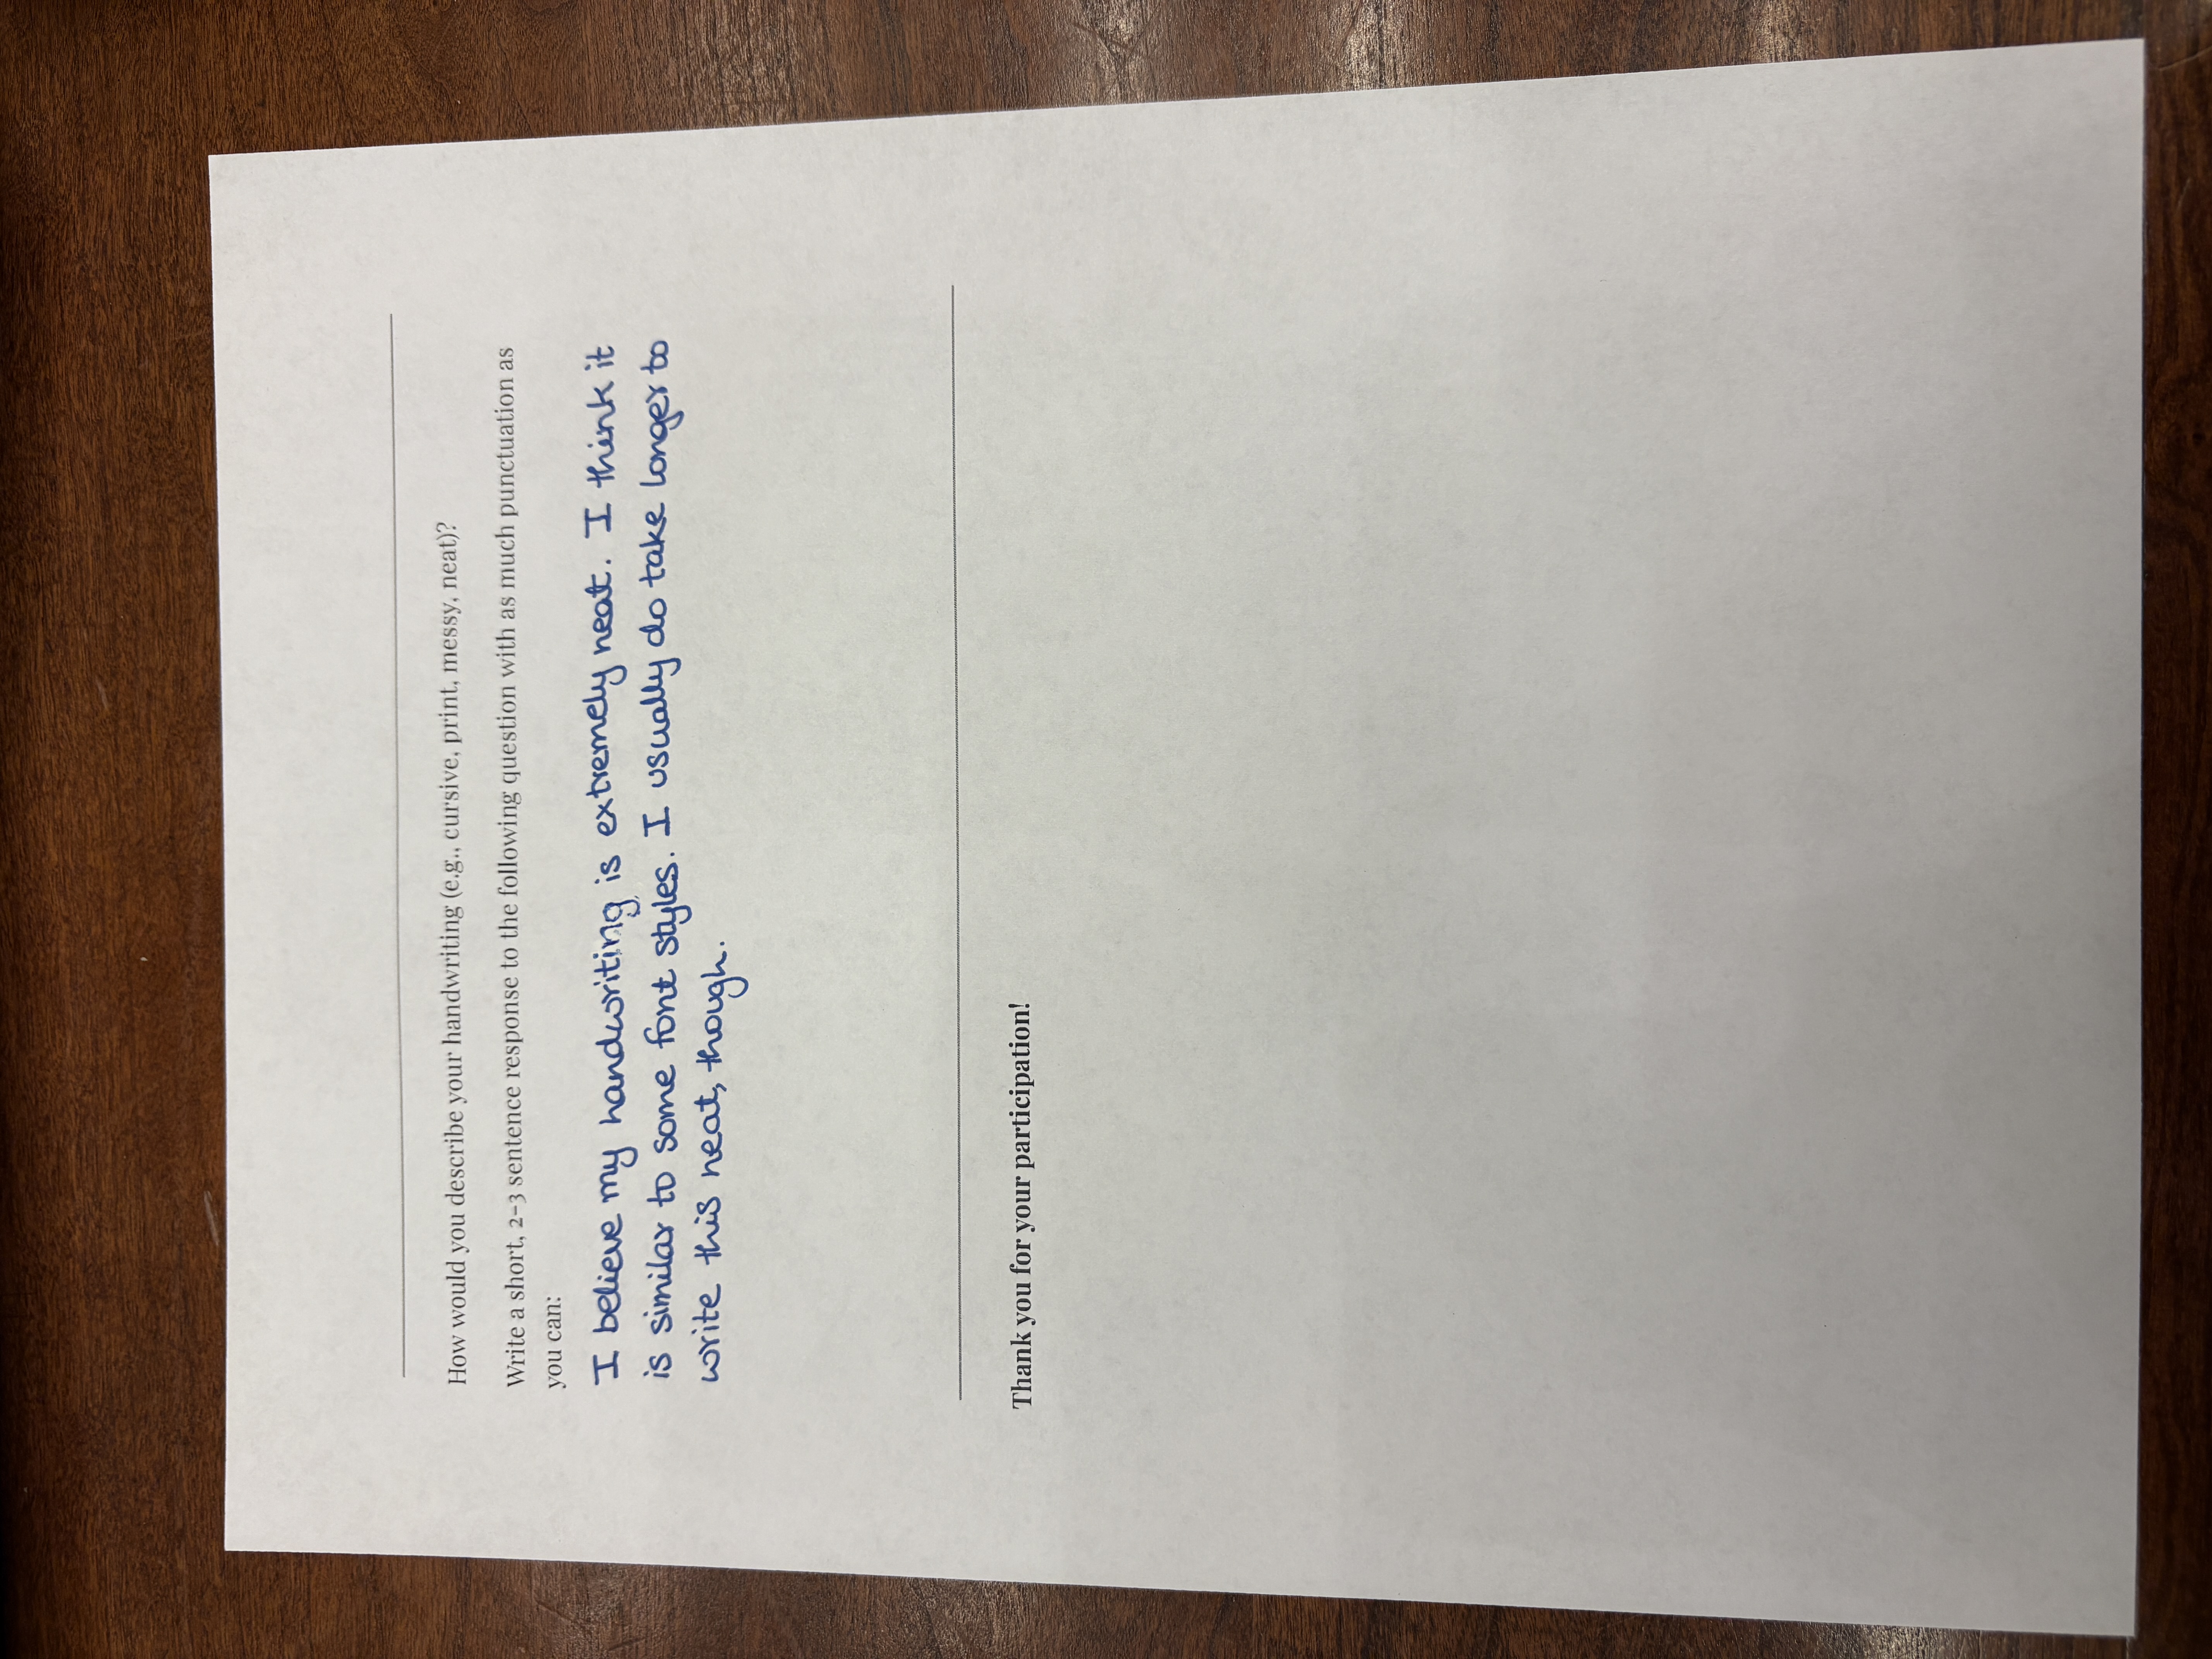 How would you describe your handwriting (e.g., cursive, print, messy, neat)?
Write a short, 2-3 sentence response to the following question with as much punctuation as
you can:
I believe my handwriting is extremely neat. I think it
is similar to some font styles. I usually do take longer to
write this neat, though.
Thank you for your participation!